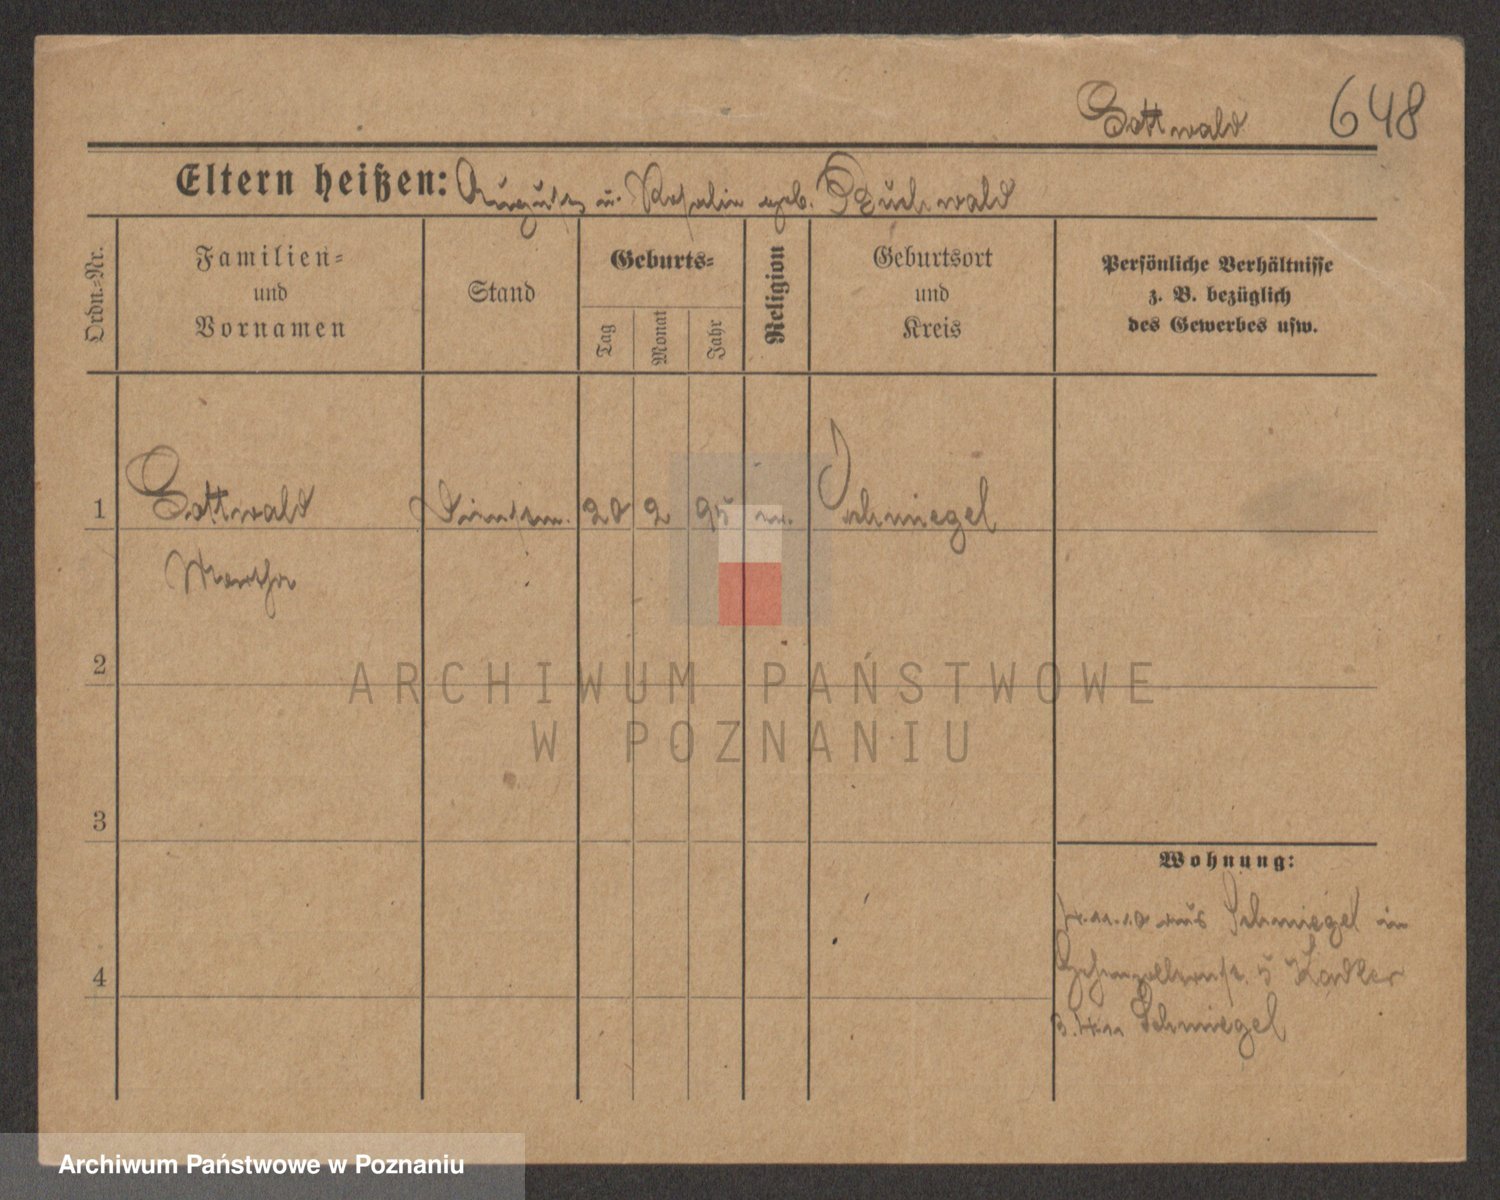 Gottwald 648
Eltern heißen: August u. Rosalie geb. Buchwald
Ordn.-Nr.
Familien-
und
Vornamen
Stand
Geburts-
Tag
Monat
Jahr
Religion
Geburtsort
und
Kreis
Persönliche Verhältnisse
z. B. bezüglich
des Gewerbes usw.
1 Gottwald Dienstm. 20 2 95 Schmiegel
Martha
2
3
4
Wohnung:
aus Schmiegel in
5
Schmiegel
ARCHIWUM PAŃSTWOWE
W POZNANIU
Archiwum Państwowe w Poznaniu